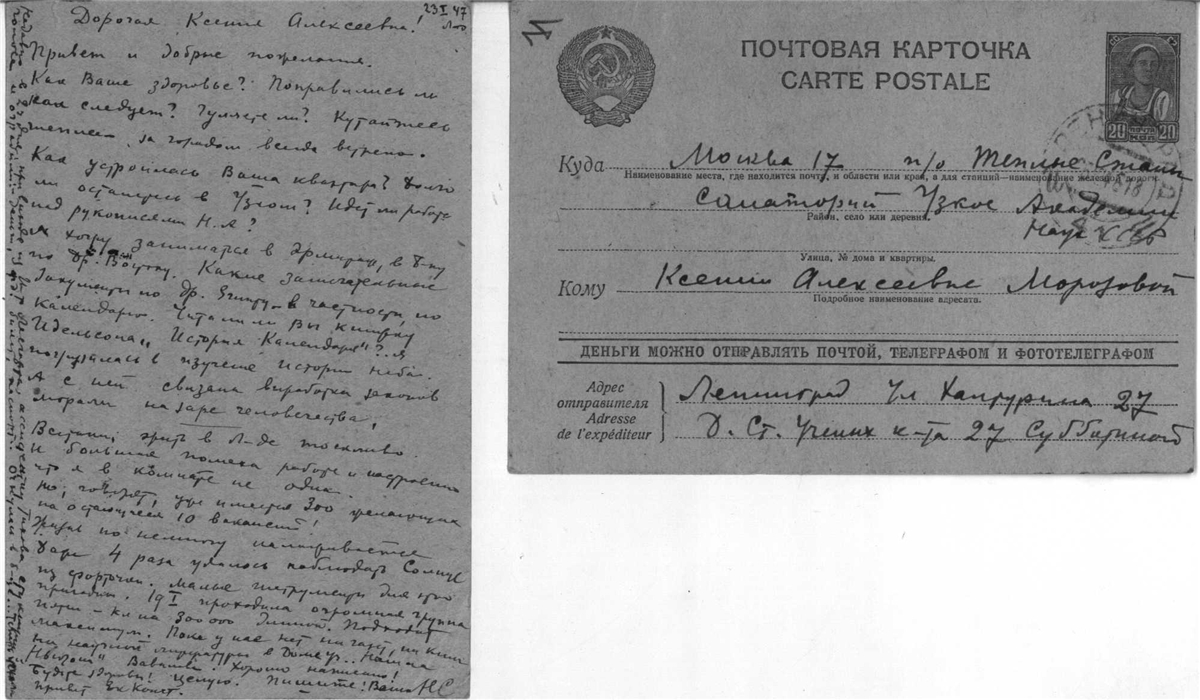 23 I 47
Л-д
Дорогая Ксения Алексеевна!
Привет и добрые пожелания.
Как Ваше здоровье? Поправились ли
как следует? Гуляете ли? Кутайтесь
теплее за городом всегда ветрено.
Как устроилась Ваша квартира? Долго
ли останетесь в Узком? Идет ли работа
над рукописями Н.А?
Я хожу заниматься в Эрмитаж, в
по Др. Востоку. Какие замечательные
документы по Др. Египту - в частности по
календарю. Читали ли Вы книжку
Идельсона "История Календаря"? Я
погружалась в изучение истории неба.
А с ней связана выработка законов
морали на заре человечества.
жить в Л-де тоскливо.
И большая помеха работе и настроению
что я в комнате не одна.
Но, говорят, уже имеется 300 желающих
на остающиеся 10 вакансий!
Жизнь по немногу налаживается
Даже 4 раза удалось наблюдать Солнце
из форточки. Малые инструменты для этого
пригодны. 19 I проходила огромная группа
пятен - кл на 300 000 длиной. Подходит
максимум. Пока у нас нет ни газет, ни книг
ни научной литературы в Доме уч.. Нашла
"Ньютон" Вавилова. Хорошо написано!
Будьте здоровы! Целую. Пишите! Ваша НС
Привет Ек Конст.
ПОЧТОВАЯ КАРТОЧКА
CARTE POSTALE
20 ПОЧТА КОП 20
Куда Москва 17 п/о Теплые Станы
Наименование места, где находится почта, и области или края, а для станций—наименование железной дороги.
санаторий Узкое Академии
Район, село или деревня.
Наук СССР
Улица, № дома и квартиры.
Кому Ксении Алексеевне Морозовой
Подробное наименование адресата.
ДЕНЬГИ МОЖНО ОТПРАВЛЯТЬ ПОЧТОЙ, ТЕЛЕГРАФОМ И ФОТОТЕЛЕГРАФОМ
Адрес отправителя
Adresse de l'expéditeur
Ленинград ул Халтурина 27
Д. Ст. Ученых к-та 27 Субботиной